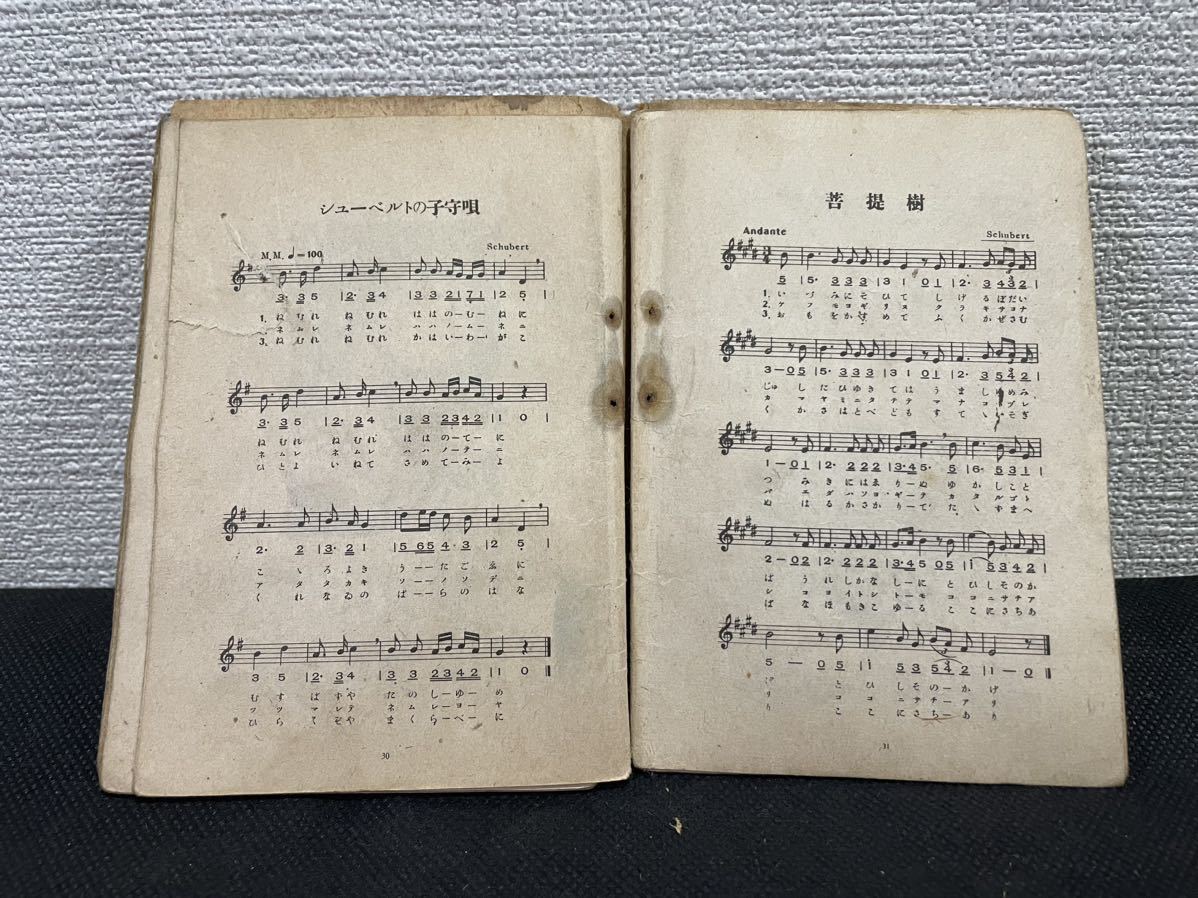 シューベルトの子守唄
Schubert
M.M. ♩=100
3· 3 5 | 2· 3 4 | 3 3 2 1 7 1 | 2 5 |
1. ねむれ ねむれ ははのーむーねに
ネムレ ネムレ ハハノームーネニ
3. ねむれ ねむれ かはいーわーがこ
3· 3 5 | 2· 3 4 | 3 3 2 3 4 2 | 1 0 |
ねむれ ねむれ ははのーてーに
ネムレ ネムレ ハハノーテーニ
ひとよ いねて さめてーみーよ
2· 2 | 3· 2 1 | 5 6 5 4· 3 | 2 5 |
こゝろよき うーたごゑに
アタタカキ ソーノソデニ
くれなゐの ばーらのはな
3 5 | 2· 3 4 | 3 3 2 3 4 2 | 1 0
むすばずや たのしーゆーめ
ツツマレテ ネムレーヨーヤ
ひらてぞや まくらーべーに
30
菩提樹
Andante
Schubert
5 | 5· 3 3 3 | 3 1 0 1 | 2· 3 4 3 2 |
1. いづみにそひて しげるぼだい
2. ケフモヨギリヌ クラキサヨナ
3. おもをかすめて ふくかぜさむ
3 — 0 5 | 5· 3 3 3 | 3 1 0 1 | 2· 3 5 4 2 |
じゅ したひゆきては うましゆめみ
カ マヤミニタチテ マナコヅレ
く かさはとべども すてゝいそぎ
1 — 0 1 | 2· 2 2 2 | 3· 4 5· 5 | 6· 5 3 1 |
つ みきにはゑりーぬ ゆかしこと
バ エダハソヨ·ギーテ カタルゴト
ぬ はるかさかりーて たゝずまへ
2 — 0 2 | 5 3 4 2 |
ば うれしかなしーに とひしそのか
シ コヨイトシトーモ ココニサチア
ば なほもきこゆーる ここにさちあ
5 — 0 5 | 5 3 5 4 2 | 1 — 0
とひしそのーかげ
リ ココニサチーアリ
り ここにさちーあり
31